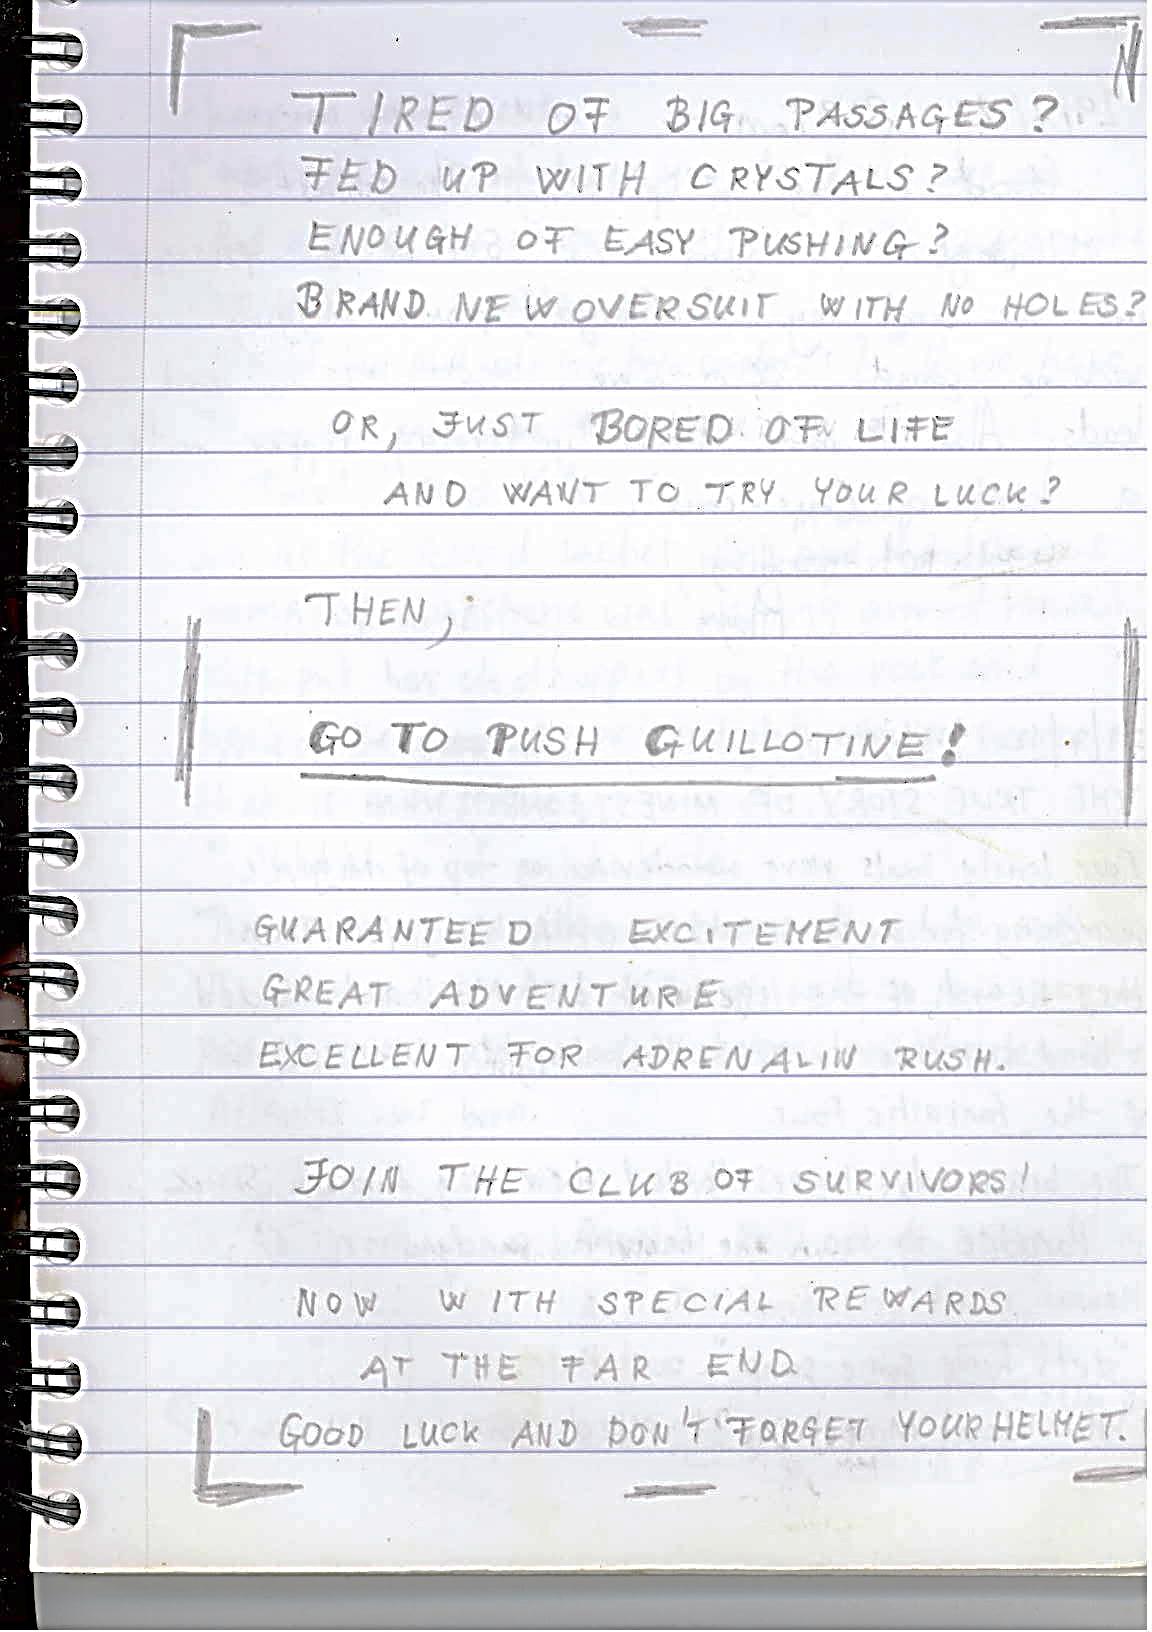 TIRED OF BIG PASSAGES?
FED UP WITH CRYSTALS?
ENOUGH OF EASY PUSHING?
BRAND NEW OVERSUIT WITH NO HOLES?
OR, JUST BORED OF LIFE
AND WANT TO TRY YOUR LUCK?
THEN,
GO TO PUSH GUILLOTINE!
GUARANTEED EXCITEMENT
GREAT ADVENTURE
EXCELLENT FOR ADRENALIN RUSH.
JOIN THE CLUB OF SURVIVORS!
NOW WITH SPECIAL REWARDS
AT THE FAR END.
GOOD LUCK AND DON'T FORGET YOUR HELMET.